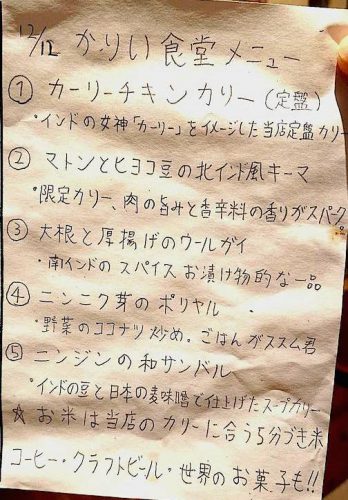 12/12 かりい食堂メニュー
① カーリーチキンカリー(定盤)
・インドの女神「カーリー」をイメージした当店定盤カリー
② マトンとヒヨコ豆の北インド風キーマ
・限定カリー、肉の旨みと香辛料の香りがスパーク
③ 大根と厚揚げのウールガイ
・南インドのスパイスお漬け物的な一品
④ ニンニク芽のポリヤル
・野菜のココナツ炒め。ごはんがススム君
⑤ ニンジンの和サンバル
・インドの豆と日本の麦味噌で仕上げたスープカリー
☆ お米は当店のカリーに合う5分づき米
コーヒー・クラフトビール・世界のお菓子も!!